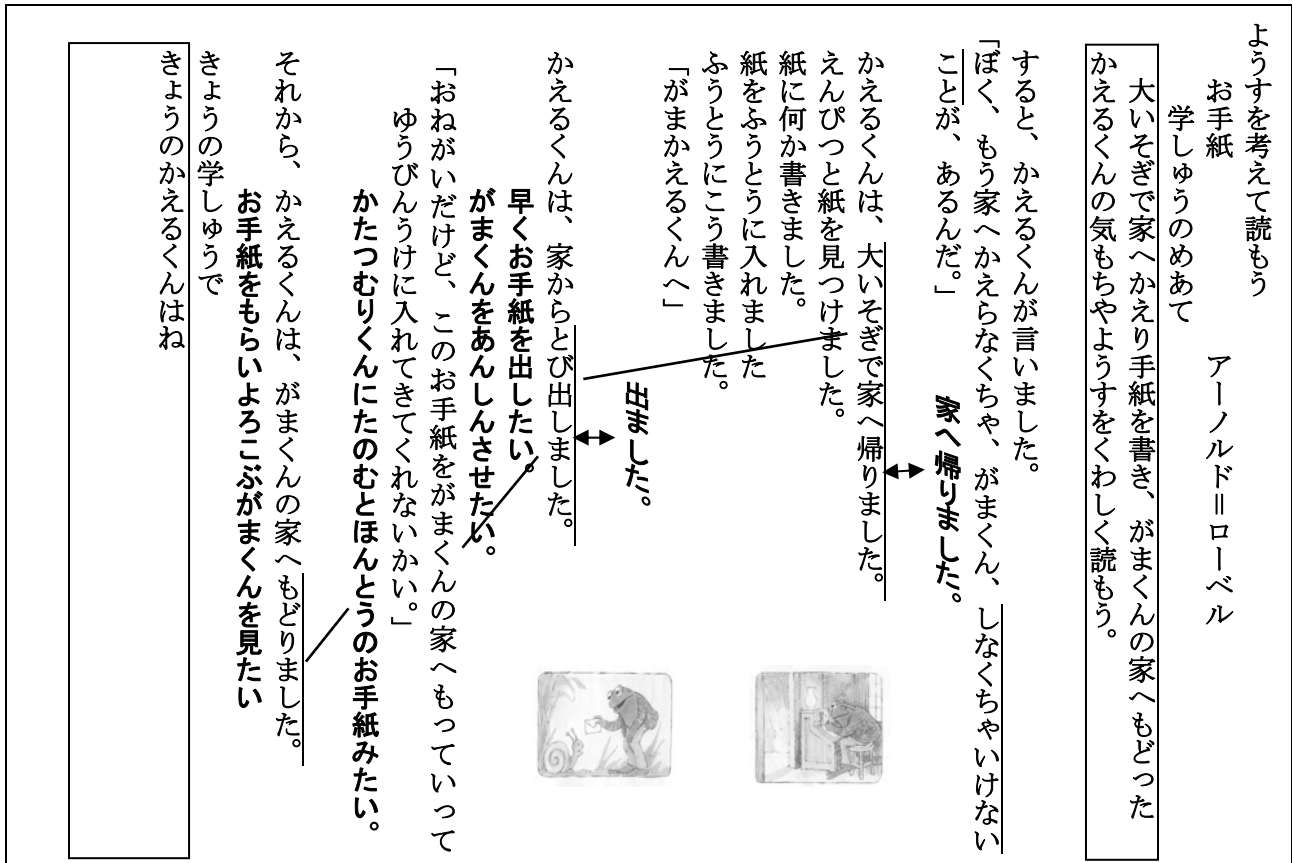 ようすを考えて読もう
お手紙　　　　　アーノルド＝ローベル
学しゅうのめあて
大いそぎで家へかえり手紙を書き、がまくんの家へもどった
かえるくんの気もちやようすをくわしく読もう。
すると、かえるくんが言いました。
「ぼく、もう家へかえらなくちゃ、がまくん、しなくちゃいけない
ことが、あるんだ。」
家へ帰りました。
かえるくんは、大いそぎで家へ帰りました。
えんぴつと紙を見つけました。
紙に何か書きました。
紙をふうとうに入れました
ふうとうにこう書きました。
「がまかえるくんへ」
出ました。
かえるくんは、家からとび出しました。
早くお手紙を出したい。
がまくんをあんしんさせたい。
「おねがいだけど、このお手紙をがまくんの家へもっていって
ゆうびんうけに入れてきてくれないかい。」
かたつむりくんにたのむとほんとうのお手紙みたい。
それから、かえるくんは、がまくんの家へもどりました。
お手紙をもらいよろこぶがまくんを見たい
きょうの学しゅうで
きょうのかえるくんはね